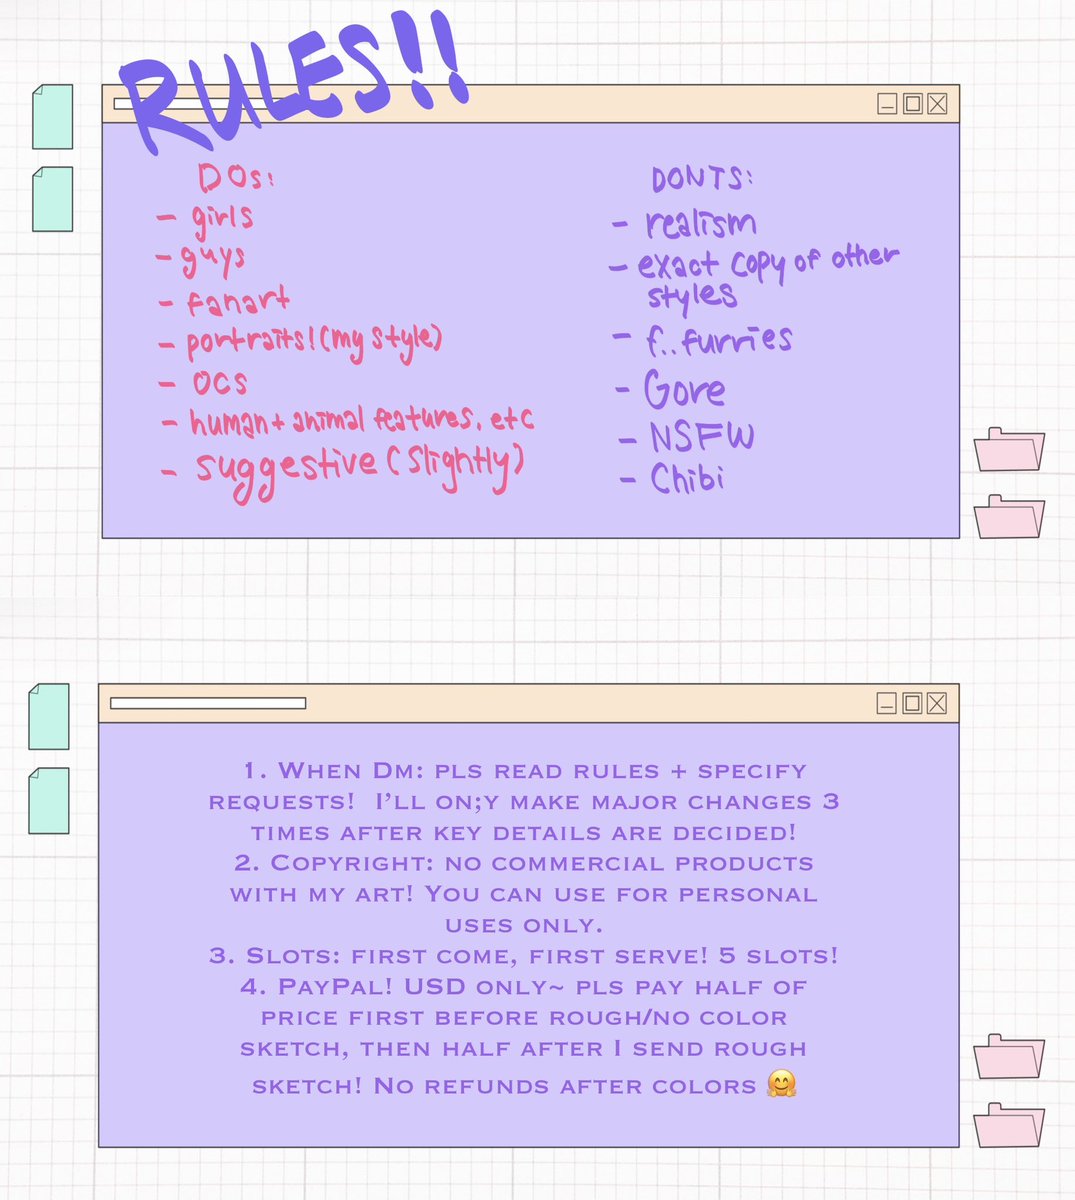 RULES!!
DOs:
- girls
- guys
- fanart
- portraits! (my style)
- OCS
- human + animal features, etc
- suggestive (slightly)
DONTS:
- realism
- exact copy of other
styles
- f..furries
- Gore
- NSFW
- Chibi
1. When Dm: pls read rules + specify
requests!  I'll on;y make major changes 3
times after key details are decided!
2. Copyright: no commercial products
with my art! You can use for personal
uses only.
3. Slots: first come, first serve! 5 slots!
4. PayPal! USD only~ pls pay half of
price first before rough/no color
sketch, then half after I send rough
sketch! No refunds after colors 🤗